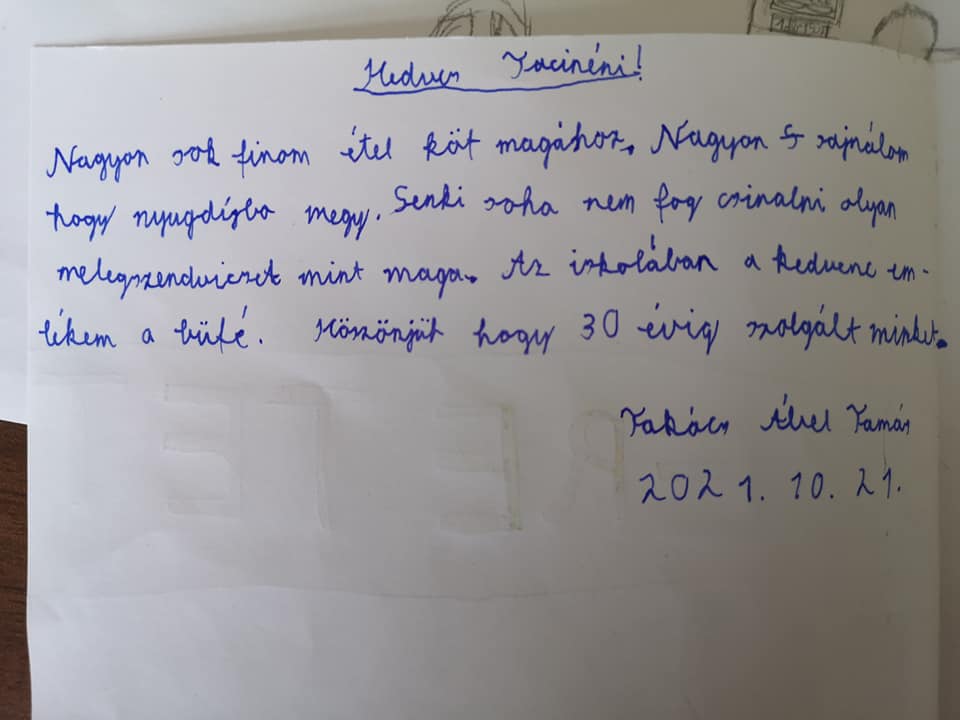 Kedves Jacinéni!
Nagyon sok finom étel köt magához. Nagyon sajnálom
hogy nyugdíjba megy. Senki soha nem fog csinalni olyan
melegszendvicset mint maga. Az iskolában a kedvenc em-
lékem a büfé. Köszönjük hogy 30 évig szolgált minket.
Takács Ábel Tamás
2021. 10. 21.